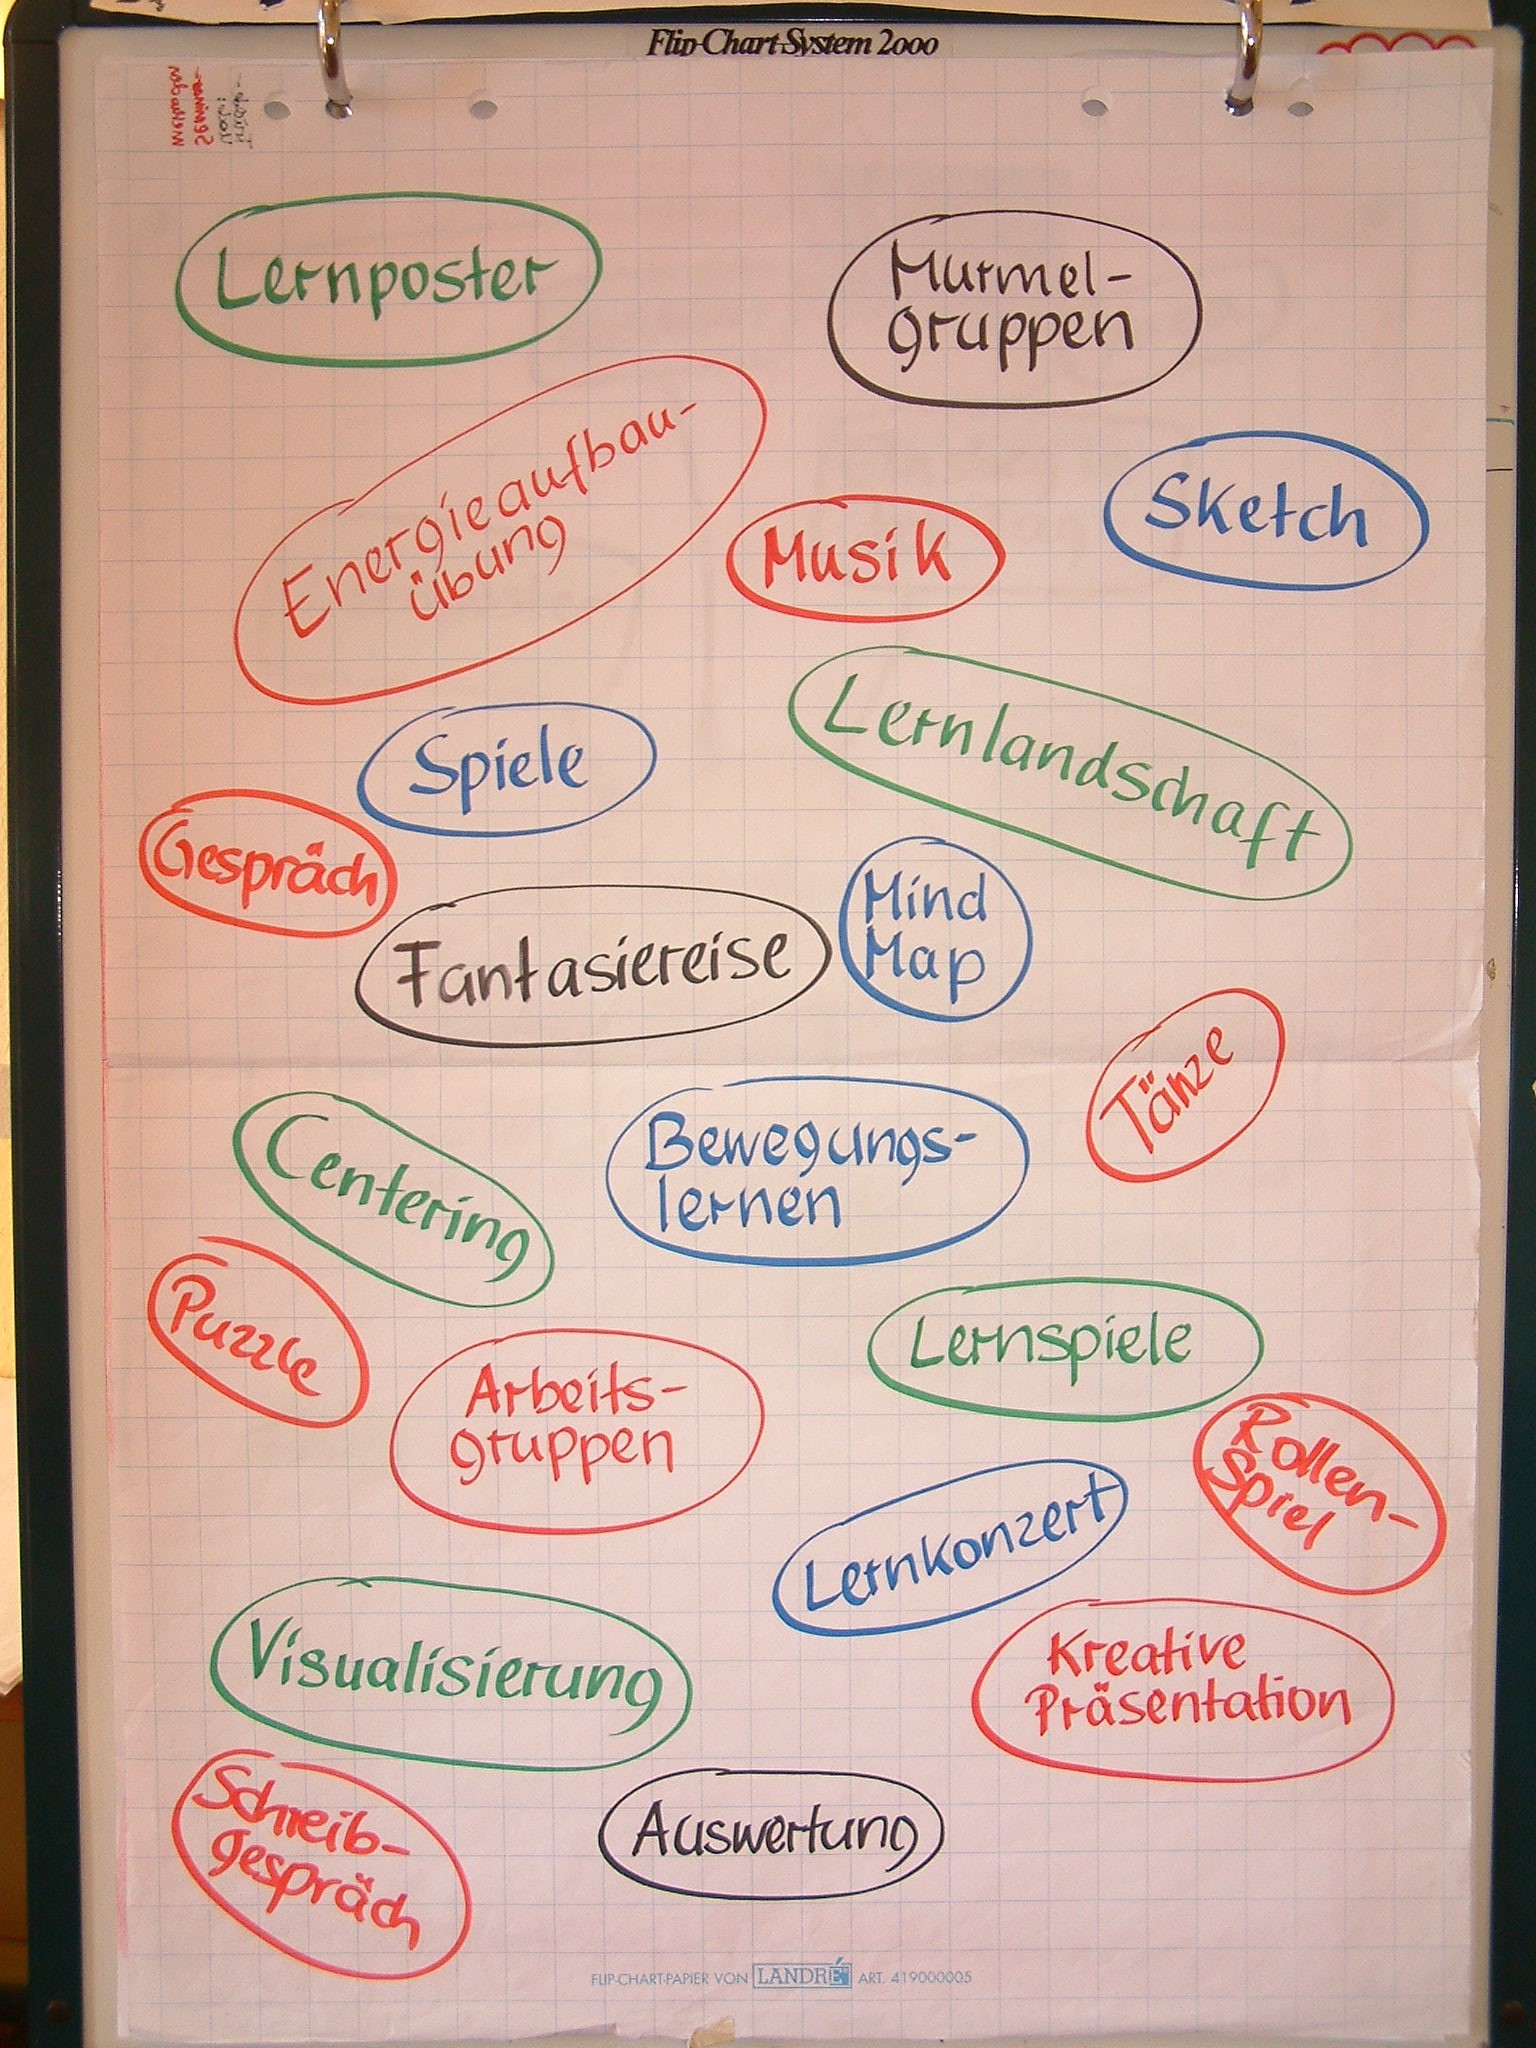 Flip-Chart-System 2000
Lernposter
Murmel-
gruppen
Energieaufbau-
übung
Musik
Sketch
Spiele
Lernlandschaft
Gespräch
Fantasiereise
Mind
Map
Tänze
Centering
Bewegungs-
lernen
Puzzle
Arbeits-
gruppen
Lernspiele
Rollen-
Spiel
Lernkonzert
Visualisierung
Kreative
Präsentation
Schreib-
gespräch
Auswertung
FLIP-CHART-PAPIER VON LANDRÉ ART. 419000005